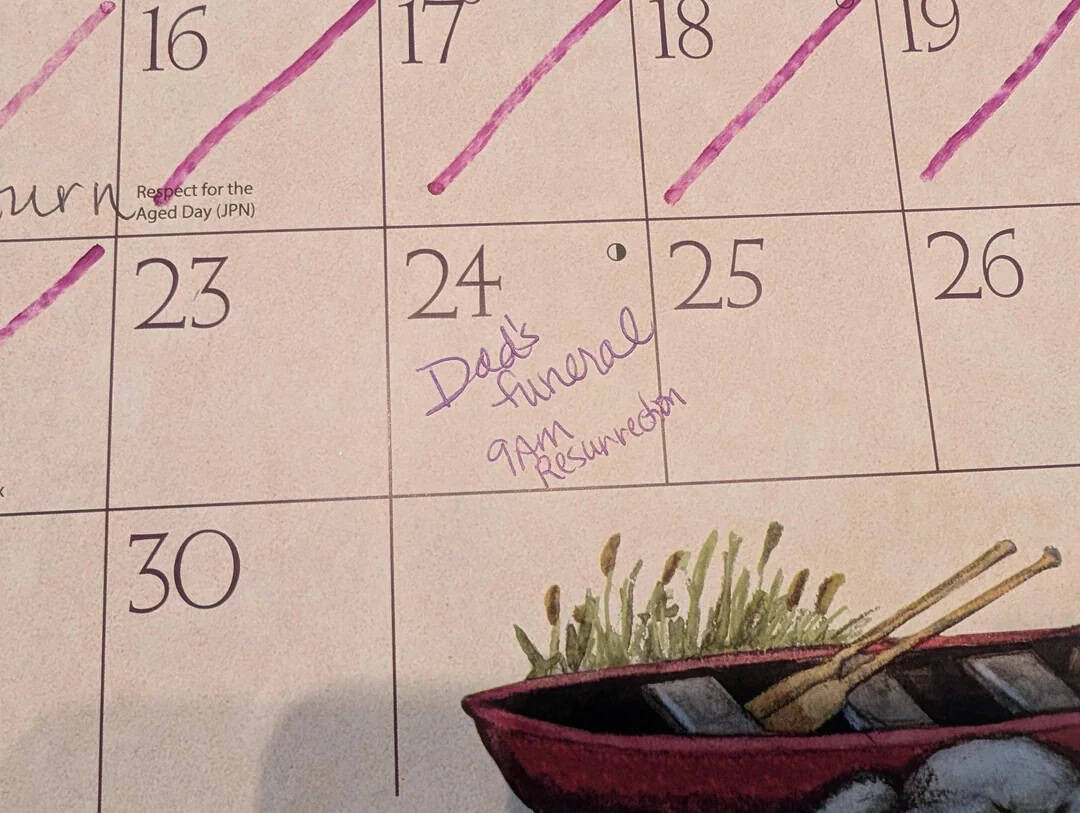 16
17
18
19
urn
Respect for the
Aged Day (JPN)
23
24
25
26
Dad's
funeral
9AM
Resurrection
30